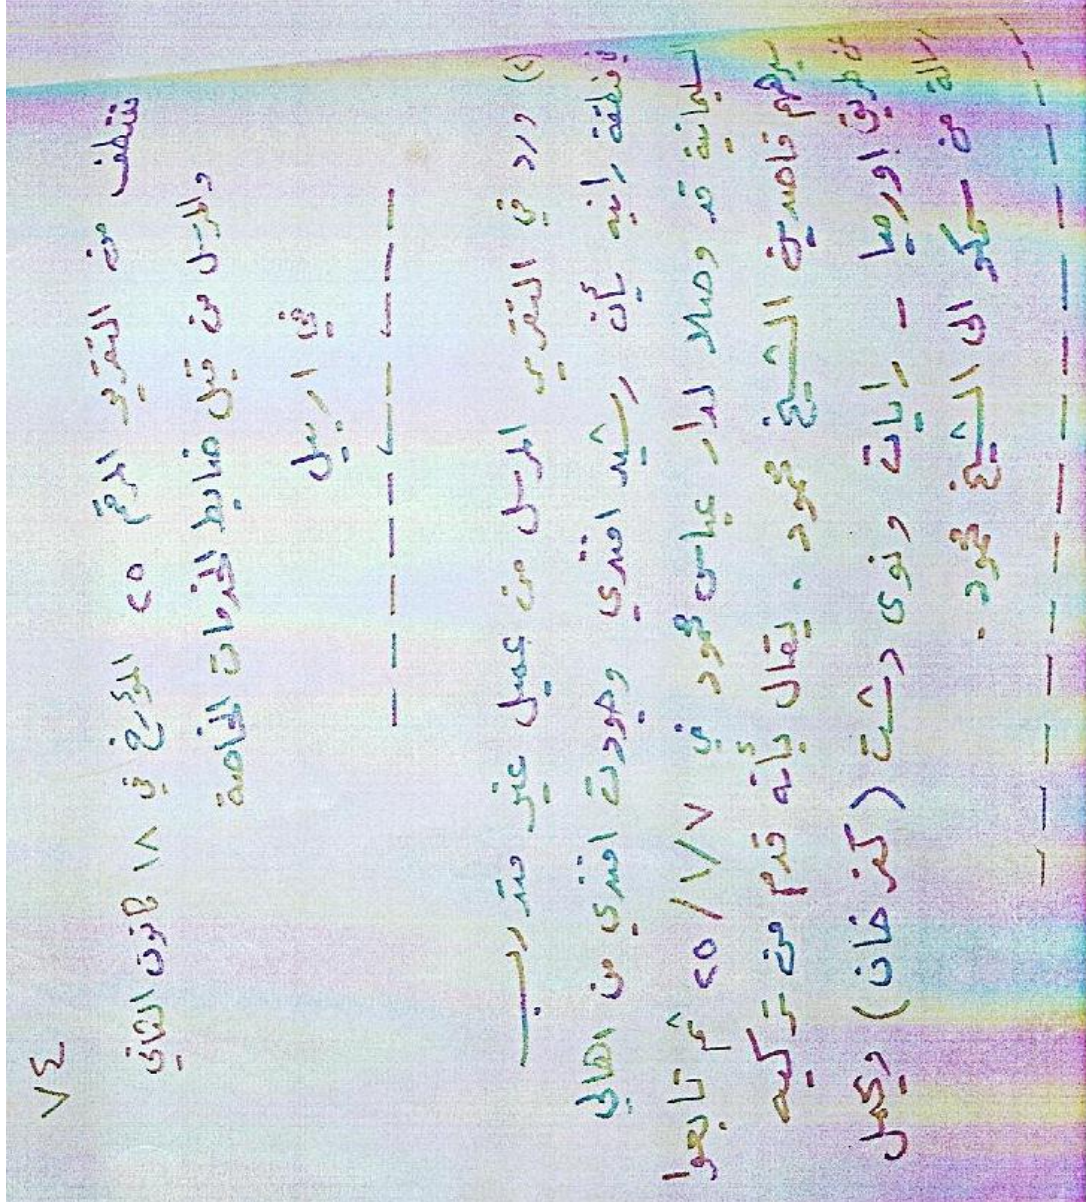 ٧٤
مقتطف من التقرير المرقم ٢٥ المؤرخ في ١٨ كانون الثاني
والمرسل من قبل ضابط الخدمات الخاصة
في اربيل
٢) ورد في التقرير المرسل من عميل غير متدرب
بمنطقة رانيه بأن رشيد افندي وجودت افندي من اهالي
السليمانية قد وصلا لدار عباس محمود في ٢٥/١/٧ ثم تابعوا
سيرهم قاصدين الشيخ محمود . يقال بأنه قدم من تركيه
عن طريق اورميا - رايات ونوى دشت ( ) ويحمل
رسالة من سمكو الى الشيخ محمود .